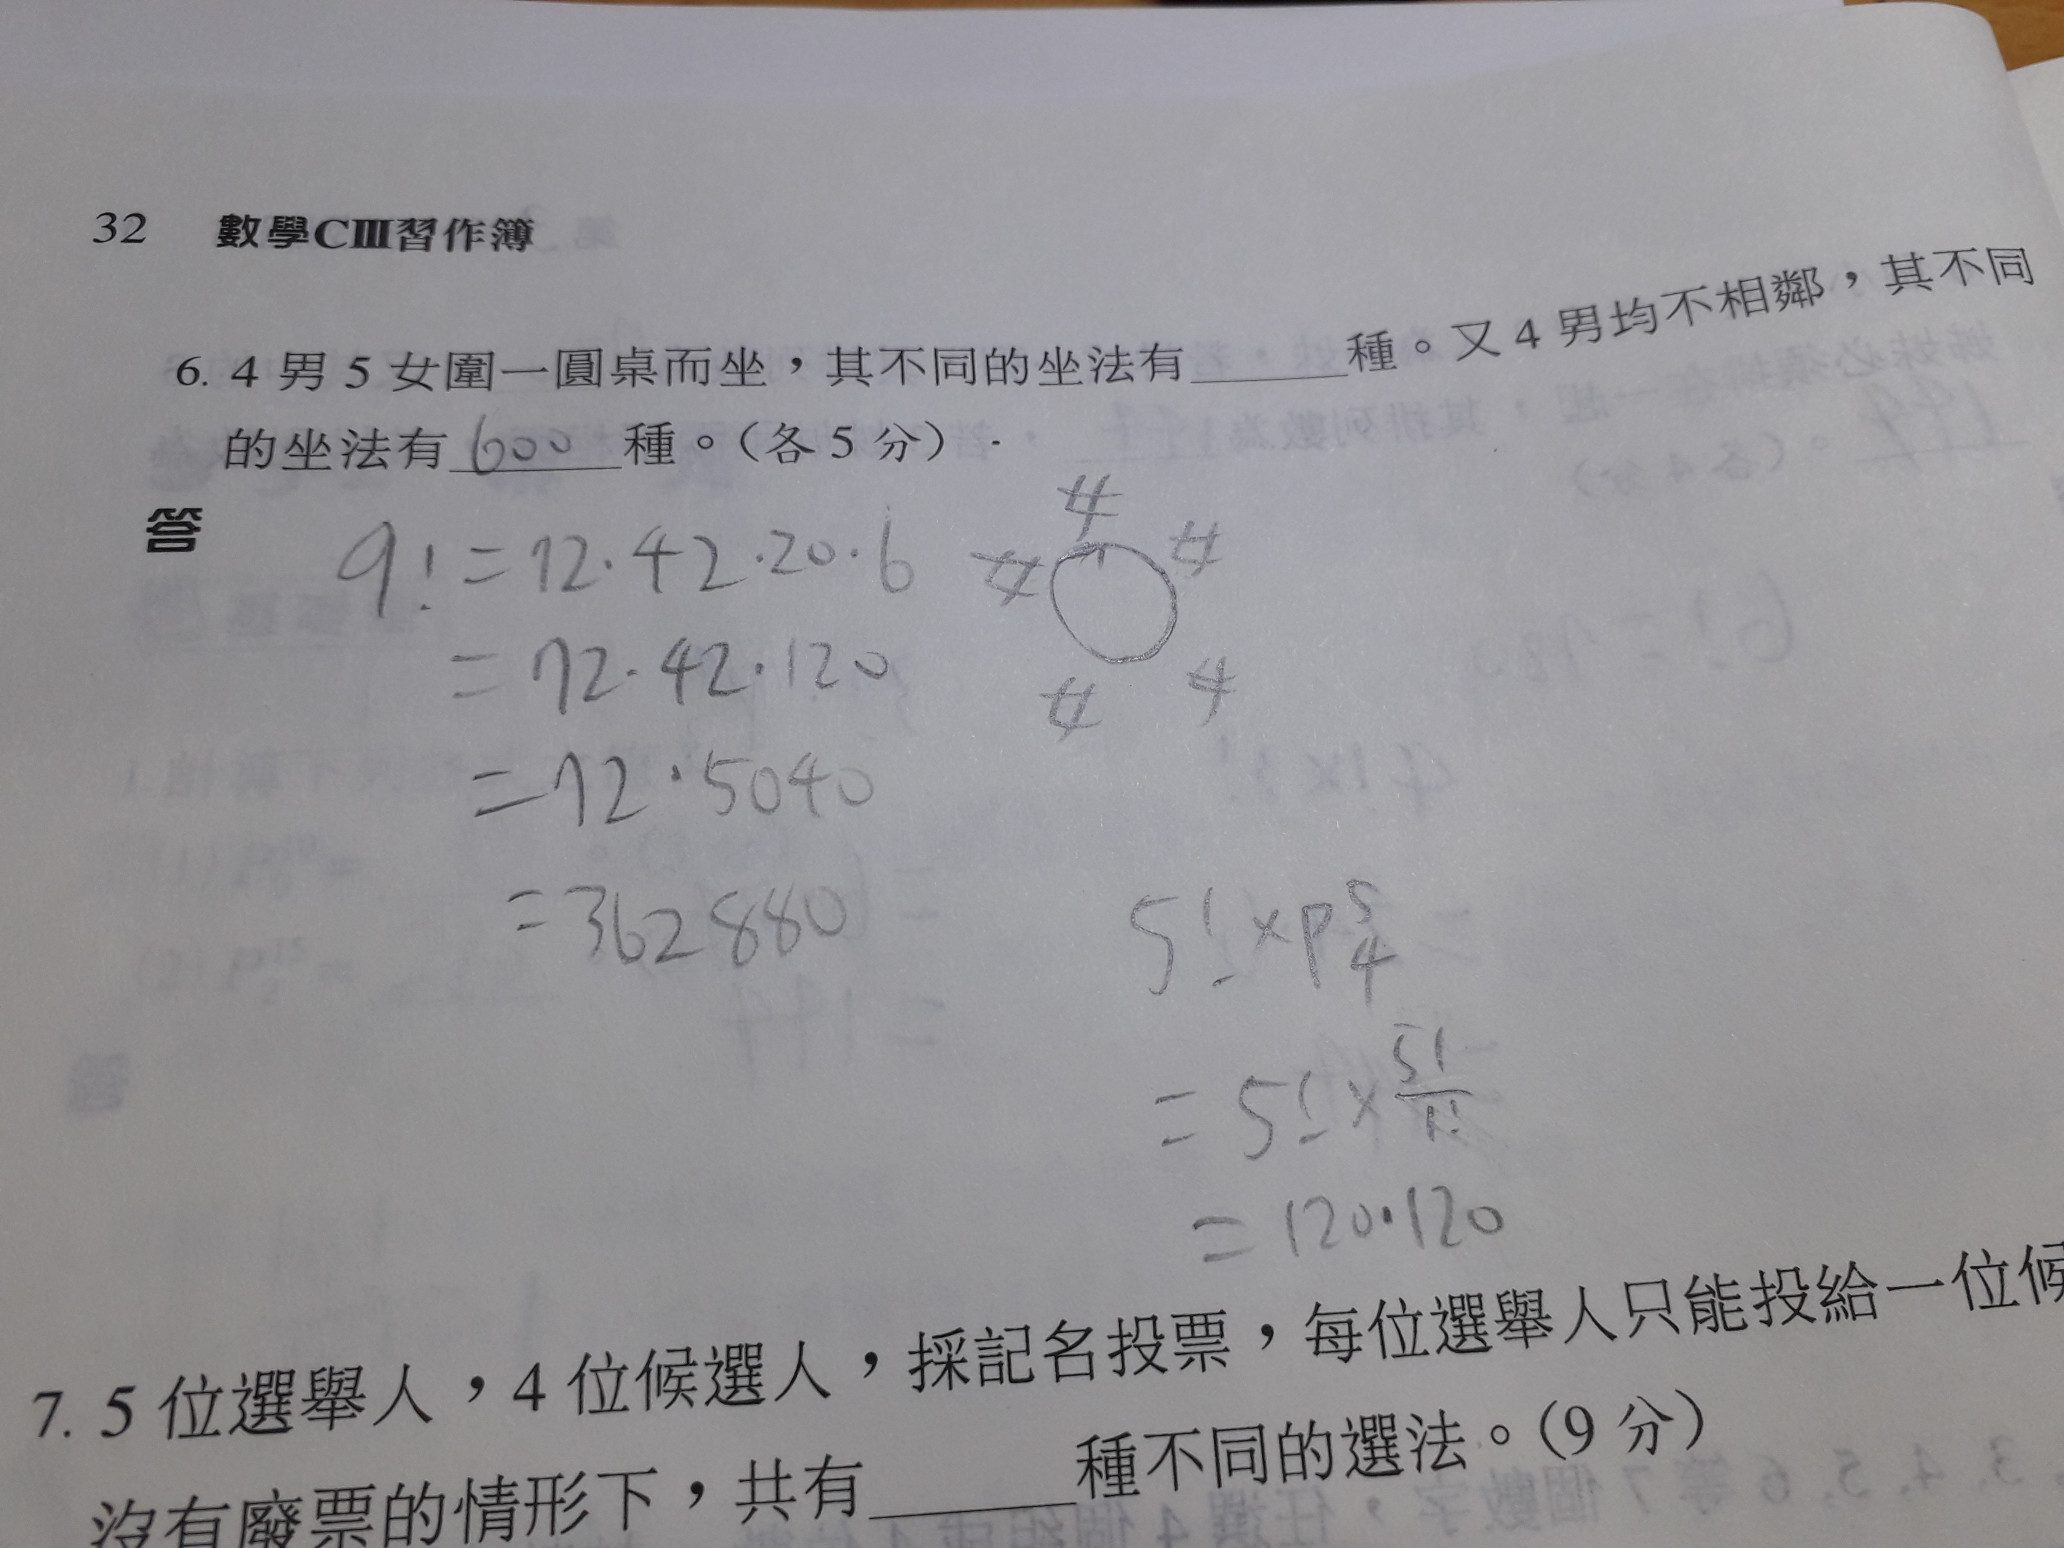 32 數學CⅢ習作簿
6. 4 男 5 女圍一圓桌而坐，其不同的坐法有______種。又 4 男均不相鄰，其不同
的坐法有 600 種。（各 5 分）
答
9! = 72·42·20·6
= 72·42·120
= 72·5040
= 362880
女
女 女
女 女
5! × P⁵₄
= 5! × 5!/1!
= 120·120
7. 5 位選舉人，4 位候選人，採記名投票，每位選舉人只能投給一位候
沒有廢票的情形下，共有______種不同的選法。（9 分）